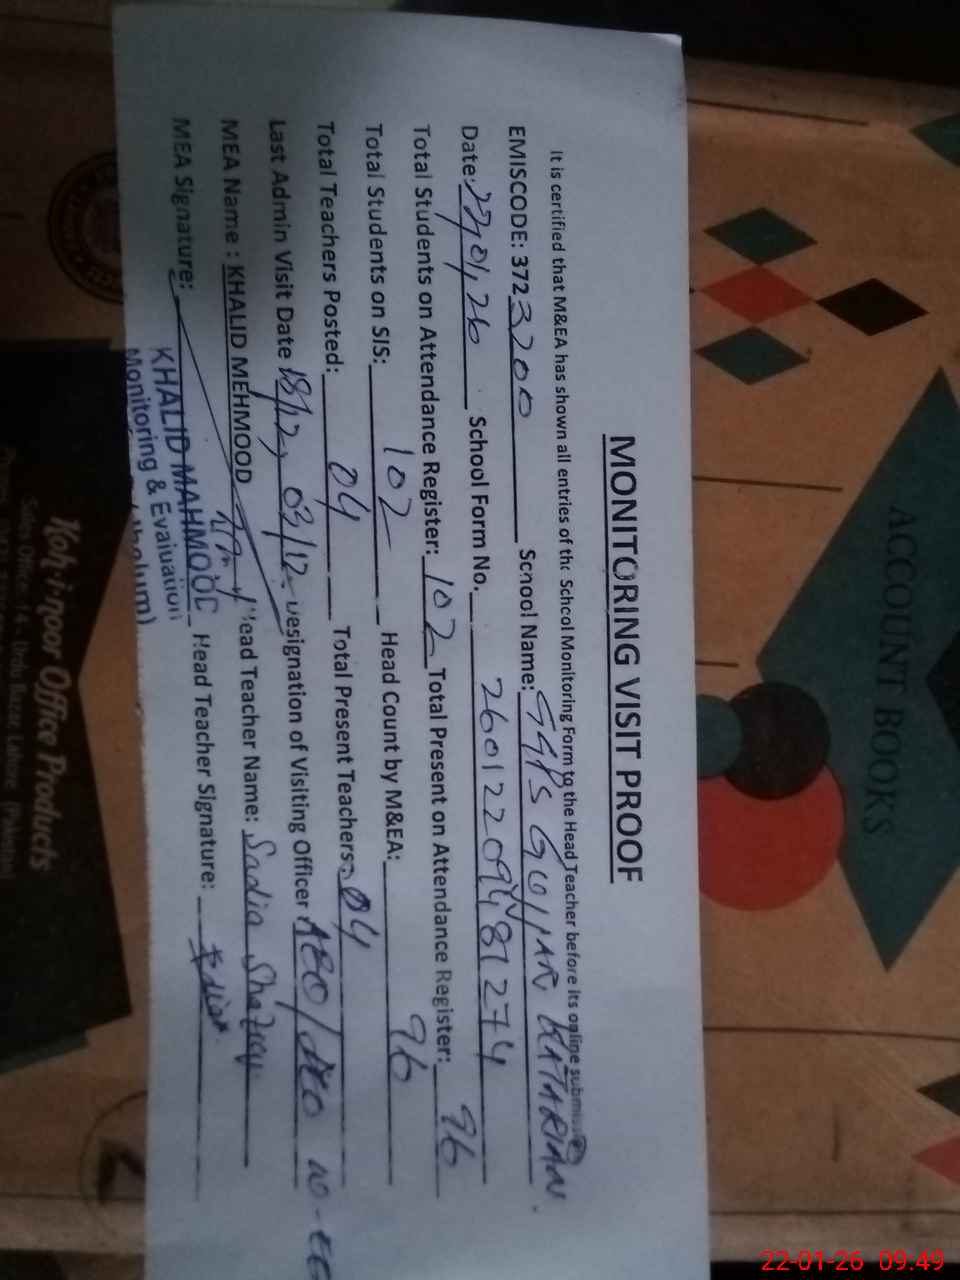 MONITORING VISIT PROOF
It is certified that M&EA has shown all entries of the School Monitoring Form to the Head Teacher before its online
EMISCODE: 3723200 School Name: GGPS GUJJAR KATARIAN.
Date: 22/01/26 School Form No. 260122094812274
Total Students on Attendance Register: 102 Total Present on Attendance Register: 96
Total Students on SIS: 102 Head Count by M&EA: 96
Total Teachers Posted: 04 Total Present Teachers: 04
Last Admin Visit Date 18/12, 03/12. Designation of Visiting Officer AEO/
MEA Name : KHALID MEHMOOD Head Teacher Name: Sadia
MEA Signature: Head Teacher Signature:
KHALID MAHMOOD
Monitoring & Evaluation
ACCOUNT BOOKS
Koh-i-noor Office Products
Sales Office: 14 - Urdu Bazar Lahore (Pakistan)
22-01-26 09:49